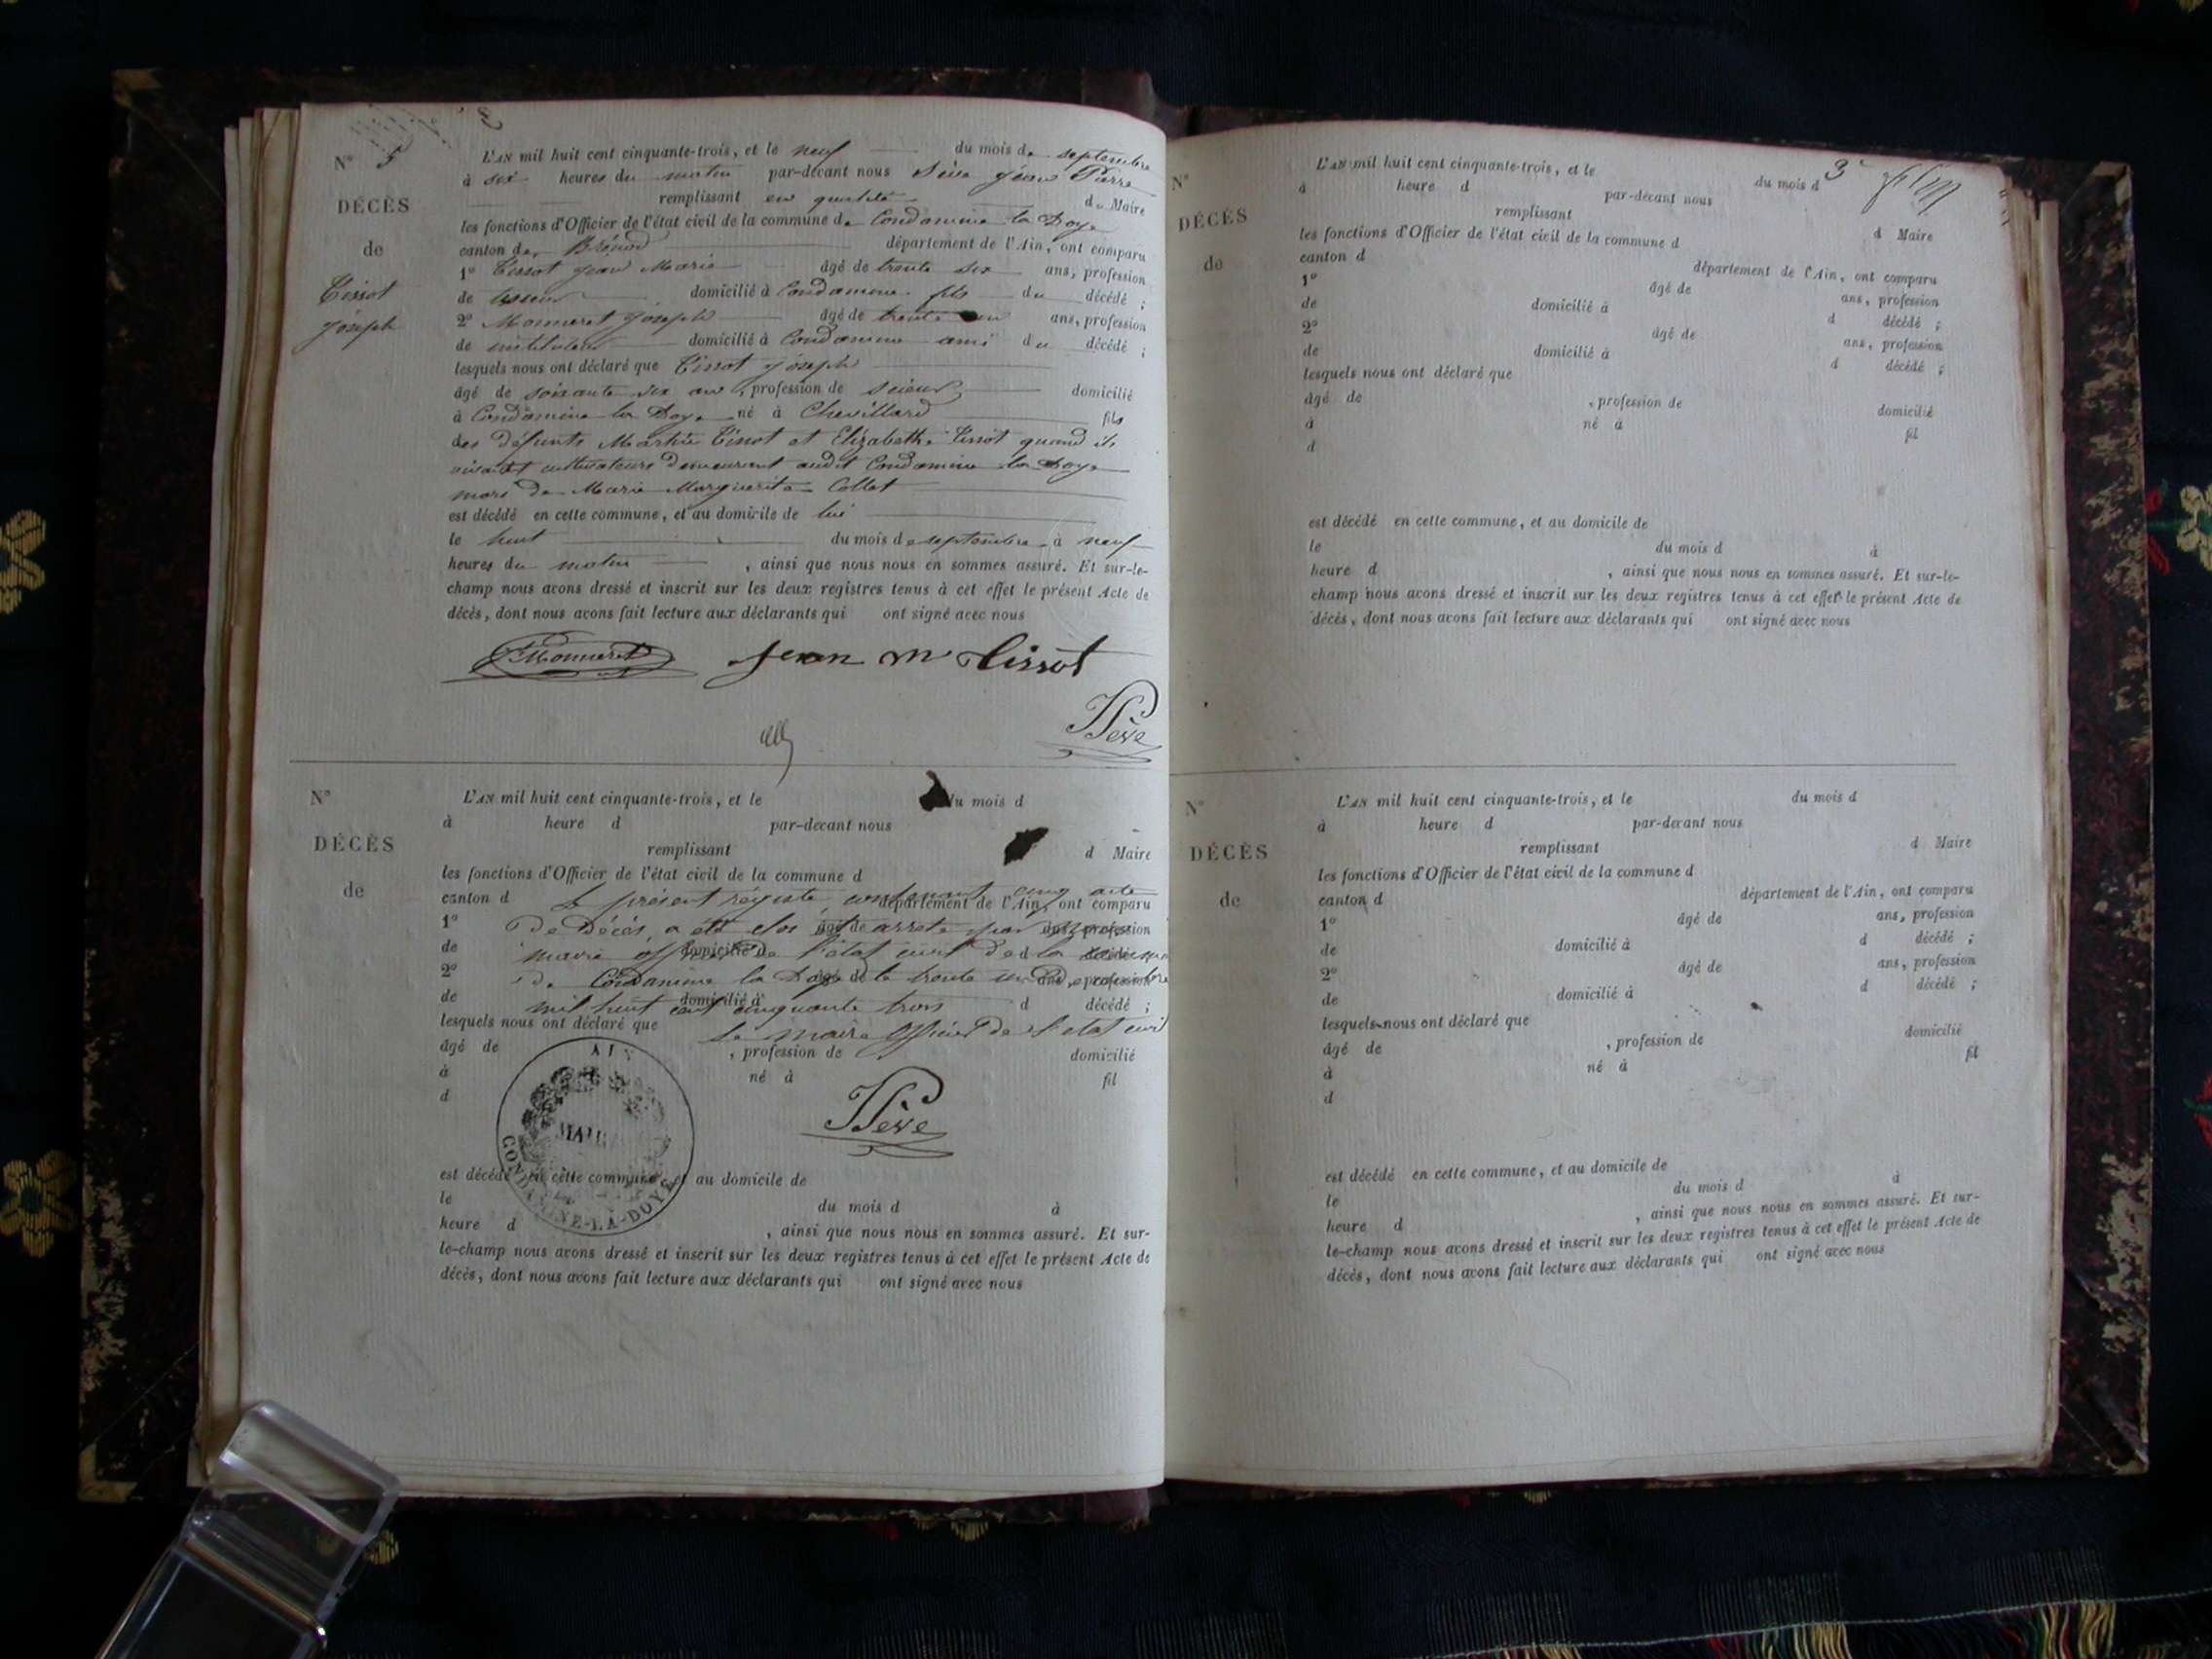 N° 5
DÉCÈS
de
Tissot
Joseph
L'AN mil huit cent cinquante-trois, et le neuf du mois de septembre
à six heures du matin par-devant nous Sève Jean Pierre
remplissant en qualité de Maire
les fonctions d'Officier de l'état civil de la commune de Condamine la Doye
canton de Brénod département de l'Ain, ont comparu
1° Tissot Jean Marie âgé de trente six ans, profession
de domicilié à Condamine fils du décédé ;
2° Monneret Joseph âgé de trente un ans, profession
de instituteur domicilié à Condamine ami du décédé ;
lesquels nous ont déclaré que Tissot Joseph
âgé de soixante six ans, profession de scieur domicilié
à Condamine la Doye né à Chevillard fils
des défunts Tissot et Elizabeth Tissot quand ils
vivaient cultivateurs demeurant audit Condamine la Doye
mari de Marie Marguerite Collet
est décédé en cette commune, et au domicile de lui
le huit du mois de septembre à neuf
heures du matin , ainsi que nous nous en sommes assuré. Et sur-le-
champ nous avons dressé et inscrit sur les deux registres tenus à cet effet le présent Acte de
décès, dont nous avons fait lecture aux déclarants qui ont signé avec nous
Monneret Jean M Tissot
Sève
N°
DÉCÈS
de
L'AN mil huit cent cinquante-trois, et le du mois d
à heure d par-devant nous
remplissant d Maire
les fonctions d'Officier de l'état civil de la commune d
canton d département de l'Ain, ont comparu
Le présent registre contenant cinq acte
1° âgé de ans, profession
de Décès, a été clos et arrêté par nous
de domicilié à d décédé
maire officier de l'état civil de la commune
2° âgé de ans, profession
de Condamine la Doye le trente un
de domicilié à d décédé ;
mil huit cent cinquante trois
lesquels nous ont déclaré que
Le maire officier de l'état civil
âgé de , profession de domicilié
à né à fil
d
AIN
MAIRIE
CONDAMINE-LA-DOYE
Sève
est décédé en cette commune, et au domicile de
le du mois d à
heure d , ainsi que nous nous en sommes assuré. Et sur-
le-champ nous avons dressé et inscrit sur les deux registres tenus à cet effet le présent Acte de
décès, dont nous avons fait lecture aux déclarants qui ont signé avec nous
3
N°
DÉCÈS
de
L'AN mil huit cent cinquante-trois, et le du mois d
à heure d par-devant nous
remplissant d Maire
les fonctions d'Officier de l'état civil de la commune d
canton d département de l'Ain, ont comparu
1° âgé de ans, profession
de domicilié à d décédé ;
2° âgé de ans, profession
de domicilié à d décédé ;
lesquels nous ont déclaré que
âgé de , profession de domicilié
à né à fil
d
est décédé en cette commune, et au domicile de
le du mois d à
heure d , ainsi que nous nous en sommes assuré. Et sur-le-
champ nous avons dressé et inscrit sur les deux registres tenus à cet effet le présent Acte de
décès, dont nous avons fait lecture aux déclarants qui ont signé avec nous
N°
DÉCÈS
de
L'AN mil huit cent cinquante-trois, et le du mois d
à heure d par-devant nous
remplissant d Maire
les fonctions d'Officier de l'état civil de la commune d
canton d département de l'Ain, ont comparu
1° âgé de ans, profession
de domicilié à d décédé ;
2° âgé de ans, profession
de domicilié à d décédé ;
lesquels nous ont déclaré que
âgé de , profession de domicilié
à né à fil
d
est décédé en cette commune, et au domicile de
le du mois d à
heure d , ainsi que nous nous en sommes assuré. Et sur-
le-champ nous avons dressé et inscrit sur les deux registres tenus à cet effet le présent Acte de
décès, dont nous avons fait lecture aux déclarants qui ont signé avec nous